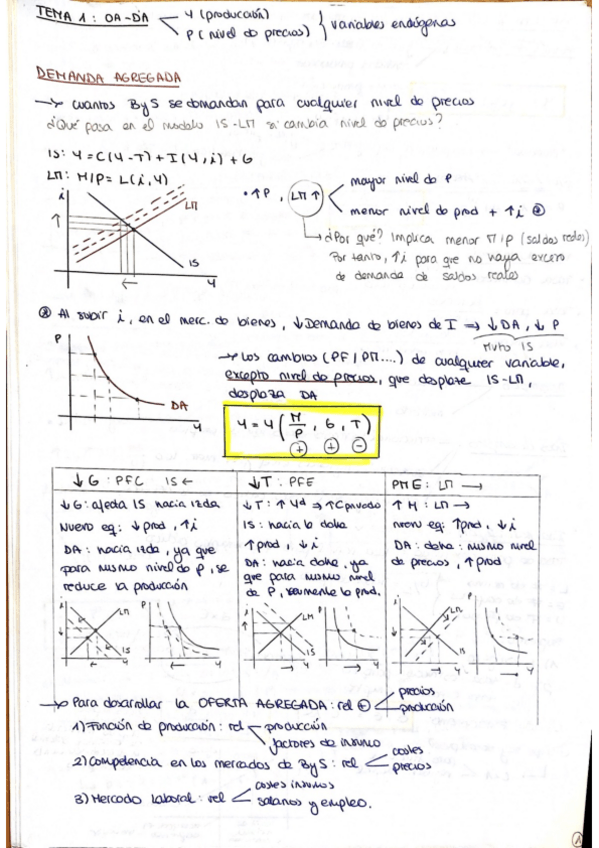 TEMA 1: OA-DA
Y (producción)
P (nivel de precios)
variables endógenas
DEMANDA AGREGADA
→ cuantos ByS se demandan para cualquier nivel de precios
¿Qué pasa en el modelo IS-LM si cambia nivel de precios?
IS: Y = C(Y-T) + I(Y,i) + G
LM: M/P = L(i,Y)
• ↑P, LM↑
mayor nivel de P
menor nivel de prod + ↑i
→ ¿Por qué? Implica menor M/P (saldos reales)
Por tanto, ↑i para que no haya exceso
de demanda de saldos reales
i
LM
IS
Y
Al subir i, en el merc. de bienes, ↓Demanda de bienes de I ⇒ ↓DA, ↓P
Mvto IS
P
DA
Y
→ Los cambios (PF/PM....) de cualquier variable,
excepto nivel de precios, que desplace IS-LM,
desplaza DA
Y = Y (M/P, G, T)
+ + -
↓G: PFC IS←
↓G: afecta IS hacia izda
Nuevo eq: ↓prod, ↑i
DA: hacia izda, ya que
para mismo nivel de P, se
reduce la producción
i LM IS Y
P Y
↓T: PFE
↓T: ↑Yd ⇒ ↑Cprivado
IS: hacia la dcha
↑prod, ↓i
DA: hacia dcha, ya
que para mismo nivel
de P, aumenta la prod.
i LM IS Y
P Y
PME: LM →
↑M: LM →
nuevo eq: ↑prod, ↓i
DA: dcha: mismo nivel
de precios, ↑prod
i LM IS Y
P Y
→ Para desarrollar la OFERTA AGREGADA: rel +
precios
producción
1) Función de producción: rel
producción
factores de insumo
2) Competencia en los mercados de ByS: rel
costes
precios
3) Mercado laboral: rel
costes insumos
salarios y empleo.
1